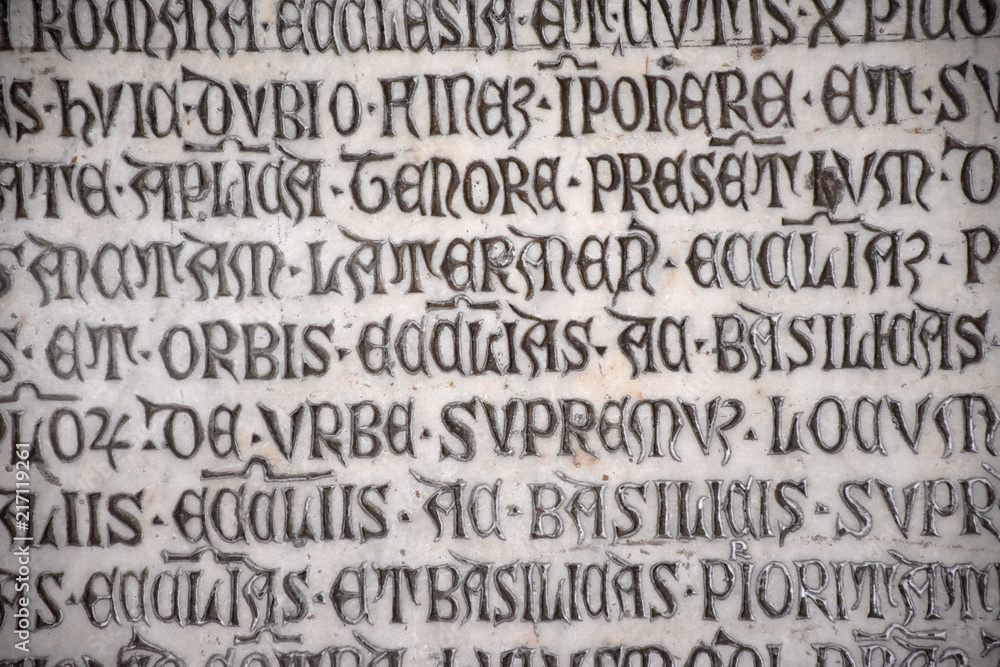 ROMANA ECCLESIA ET
AS · HVIC · DVBIO · FINEꝫ · IPONERE · ET · SV
ATE · APLICA · TENORE · PRESETIVM ·
SANCTAM · LATERANEN · ECCLIAꝫ · P
S · ET · ORBIS · ECCLIAS · AC · BASILICAS
PLOꝝ · DE · VRBE · SVPREMVꝫ · LOCVM
ELIIS · ECCLIIS · AC · BASILICIS · SVPR
AS · ECCLIAS · ET BASILICAS · PIORITATE
Adobe Stock | #217119261